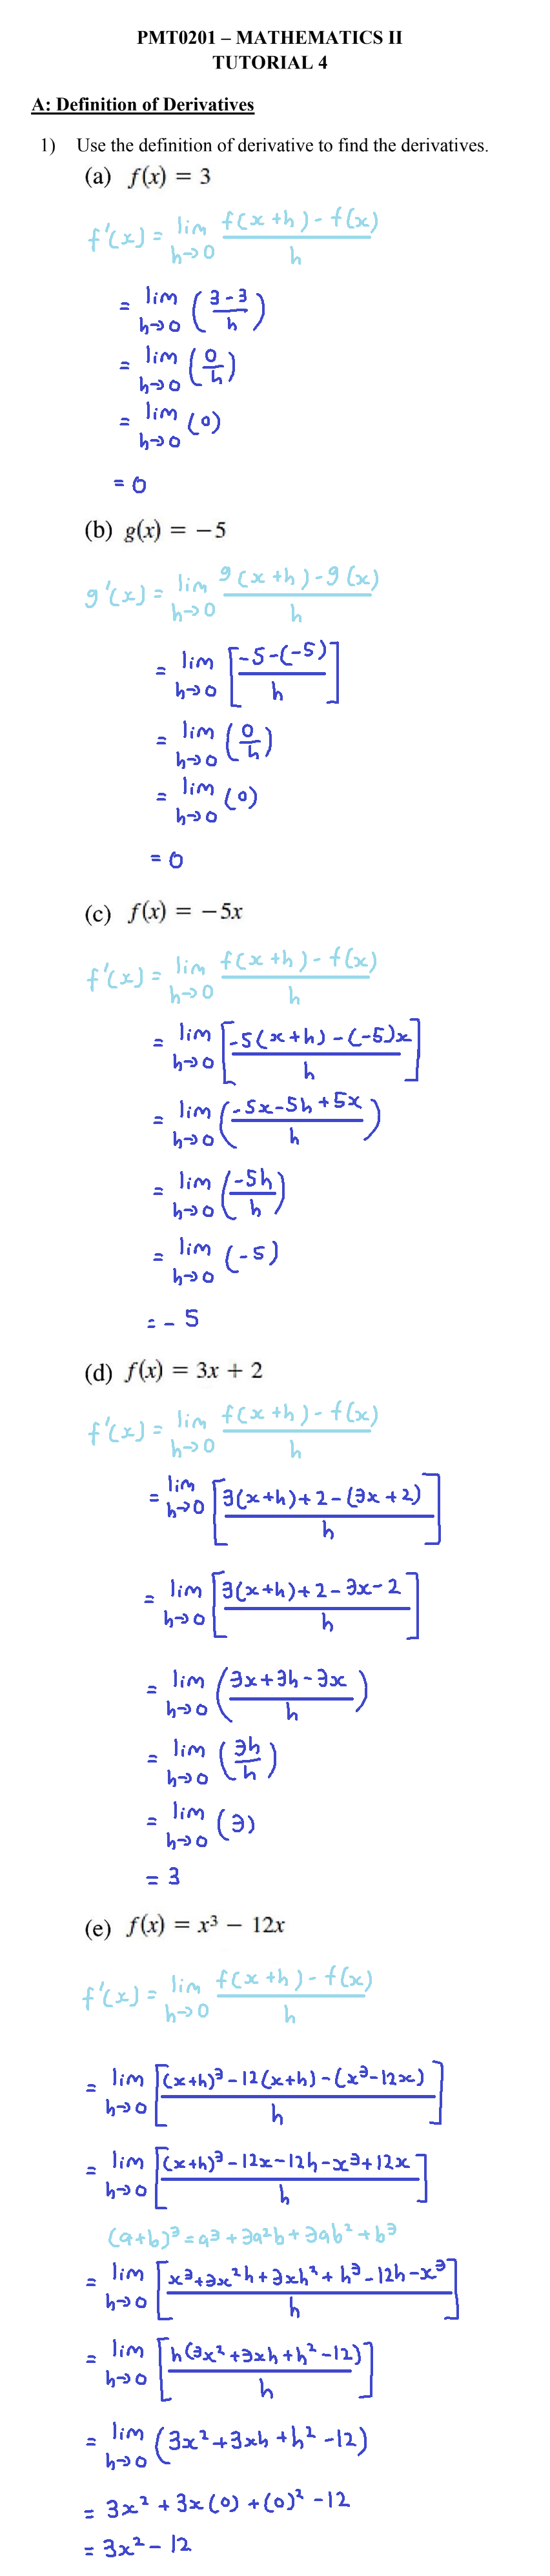 PMT0201 – MATHEMATICS II
TUTORIAL 4
A: Definition of Derivatives
1) Use the definition of derivative to find the derivatives.
(a) f(x) = 3
f'(x) = lim h→0 (f(x+h) - f(x))/h
= lim h→0 ((3-3)/h)
= lim h→0 (0/h)
= lim h→0 (0)
= 0
(b) g(x) = −5
g'(x) = lim h→0 (g(x+h) - g(x))/h
= lim h→0 [(-5-(-5))/h]
= lim h→0 (0/h)
= lim h→0 (0)
= 0
(c) f(x) = −5x
f'(x) = lim h→0 (f(x+h) - f(x))/h
= lim h→0 [(-5(x+h) - (-5)x)/h]
= lim h→0 ((-5x-5h+5x)/h)
= lim h→0 (-5h/h)
= lim h→0 (-5)
= - 5
(d) f(x) = 3x + 2
f'(x) = lim h→0 (f(x+h) - f(x))/h
= lim h→0 [(3(x+h)+2-(3x+2))/h]
= lim h→0 [(3(x+h)+2-3x-2)/h]
= lim h→0 ((3x+3h-3x)/h)
= lim h→0 (3h/h)
= lim h→0 (3)
= 3
(e) f(x) = x³ − 12x
f'(x) = lim h→0 (f(x+h) - f(x))/h
= lim h→0 [((x+h)³-12(x+h)-(x³-12x))/h]
= lim h→0 [((x+h)³-12x-12h-x³+12x)/h]
(a+b)³=a³+3a²b+3ab²+b³
= lim h→0 [(x³+3x²h+3xh²+h³-12h-x³)/h]
= lim h→0 [h(3x²+3xh+h²-12)/h]
= lim h→0 (3x²+3xh+h²-12)
= 3x² + 3x(0) + (0)² - 12
= 3x² - 12